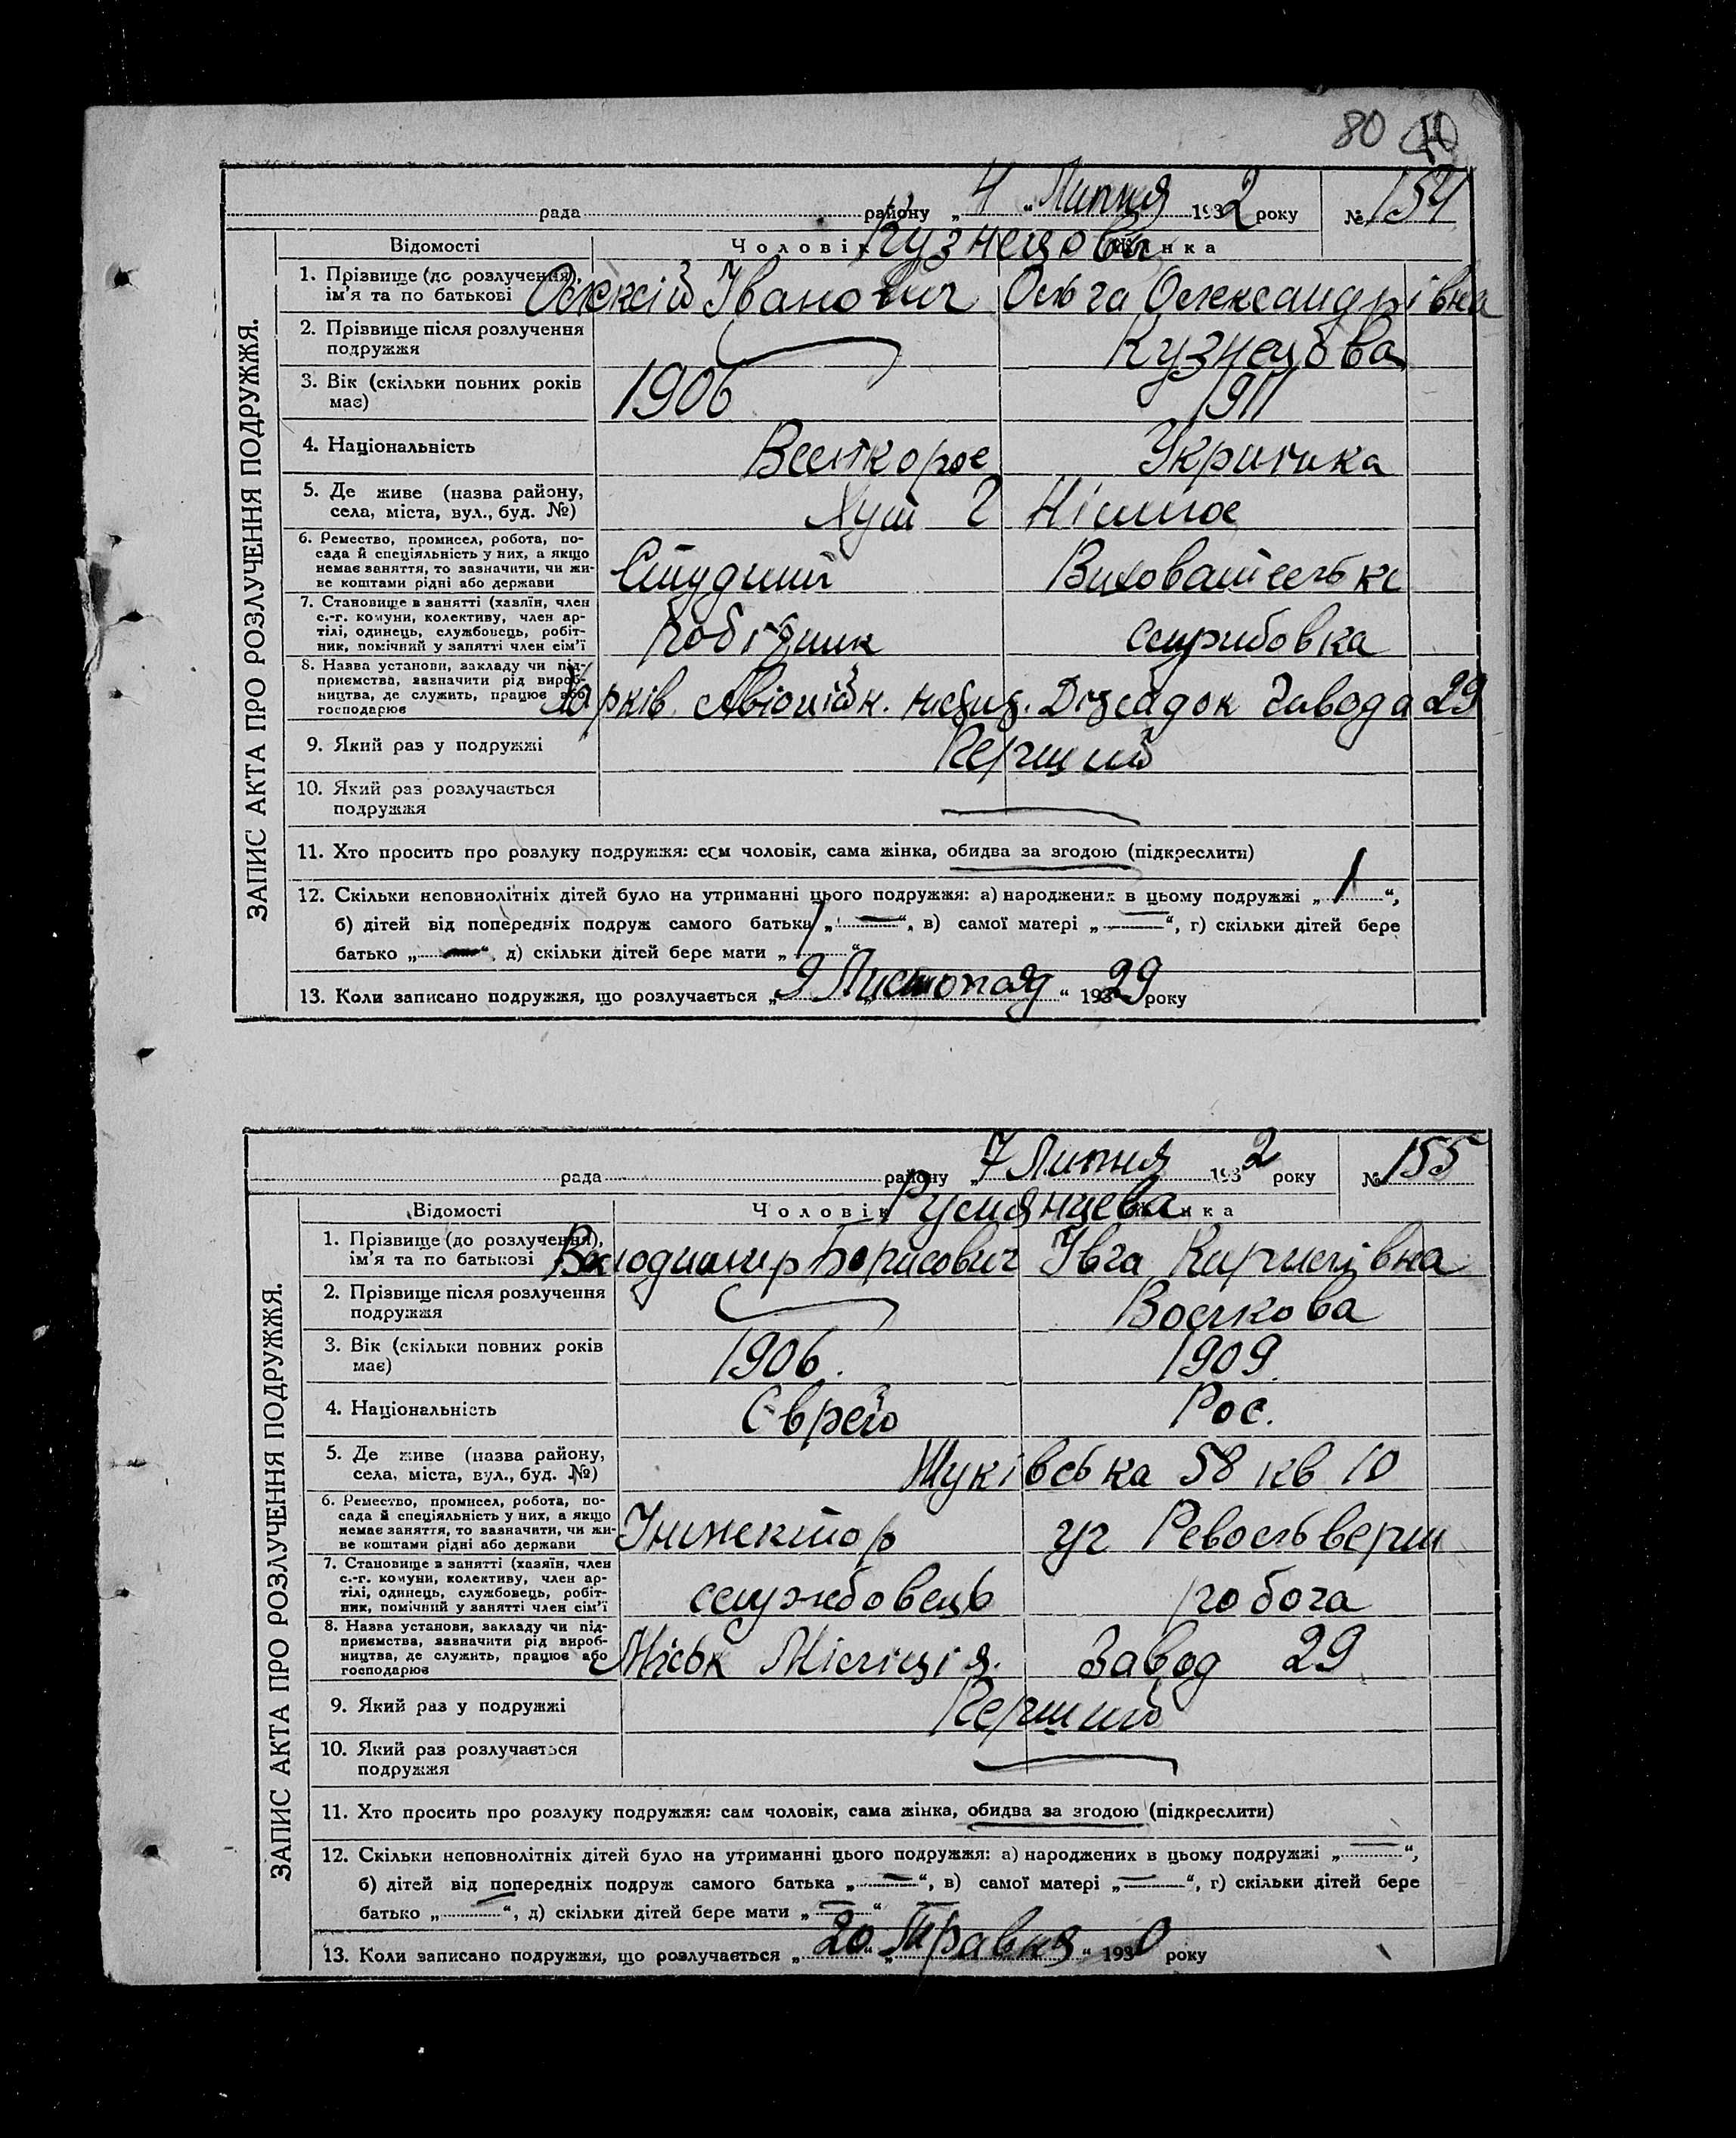 80
рада району „4 “ Липня 1932 року № 154
Відомості Чоловік Жінка
Кузнецови
1. Прізвище (до розлучення), ім'я та по батькові Олексій Іванович Ольга Олександрівна
2. Прізвище після розлучення подружжя Кузнецова
3. Вік (скільки повних років має) 1906 1911
4. Національність Велткорос Укрпитка
5. Де живе (назва району, села, міста, вул., буд. №)
6. Ремество, промисел, робота, по-
сада й спеціяльність у них, а якщо
немає заняття, то зазначити, чи жи-
ве коштами рідні або держави
Студент Вихователька
7. Становище в занятті (хазяїн, член
с.-г. комуни, колективу, член ар-
тілі, одинець, службовець, робіт-
ник, помічний у занятті член сім'ї
Робітник
8. Назва установи, закладу чи під-
приємства, зазначити рід вироб-
ництва, де служить, працює або
господарює
Харків. Авіоційн. Дитсадок Завода 29
9. Який раз у подружжі Перший
10. Який раз розлучається подружжя
11. Хто просить про розлуку подружжя: сам чоловік, сама жінка, обидва за згодою (підкреслити)
12. Скільки неповнолітніх дітей було на утриманні цього подружжя: а) народжених в цьому подружжі „ 1 “,
б) дітей від попередніх подруж самого батька „ — “, в) самої матері „ — “, г) скільки дітей бере
батько „ — “, д) скільки дітей бере мати „ 1 “
13. Коли записано подружжя, що розлучається „ 9 Листопад “ 1929 року
ЗАПИС АКТА ПРО РОЗЛУЧЕННЯ ПОДРУЖЖЯ.
рада району „7 Липня 1932 року № 155
Відомості Чоловік Жінка
Румянцева
1. Прізвище (до розлучення), ім'я та по батькові Володимир Борисович Івга Кирилівна
2. Прізвище після розлучення подружжя Волкова
3. Вік (скільки повних років має) 1906. 1909.
4. Національність Єврей Рос.
5. Де живе (назва району, села, міста, вул., буд. №) Жуківська 58 кв 10
6. Ремество, промисел, робота, по-
сада й спеціяльність у них, а якщо
немає заняття, то зазначити, чи жи-
ве коштами рідні або держави
Інспектор уч Револьверш
7. Становище в занятті (хазяїн, член
с.-г. комуни, колективу, член ар-
тілі, одинець, службовець, робіт-
ник, помічний у занятті член сім'ї
службовець робоча
8. Назва установи, закладу чи під-
приємства, зазначити рід вироб-
ництва, де служить, працює або
господарює
Міськ Міліція. Завод 29
9. Який раз у подружжі Перший
10. Який раз розлучається подружжя
11. Хто просить про розлуку подружжя: сам чоловік, сама жінка, обидва за згодою (підкреслити)
12. Скільки неповнолітніх дітей було на утриманні цього подружжя: а) народжених в цьому подружжі „ — “,
б) дітей від попередніх подруж самого батька „ — “, в) самої матері „ — “, г) скільки дітей бере
батько „ — “, д) скільки дітей бере мати „ — “
13. Коли записано подружжя, що розлучається „ 20 “ „ Травня “ 1930 року
ЗАПИС АКТА ПРО РОЗЛУЧЕННЯ ПОДРУЖЖЯ.